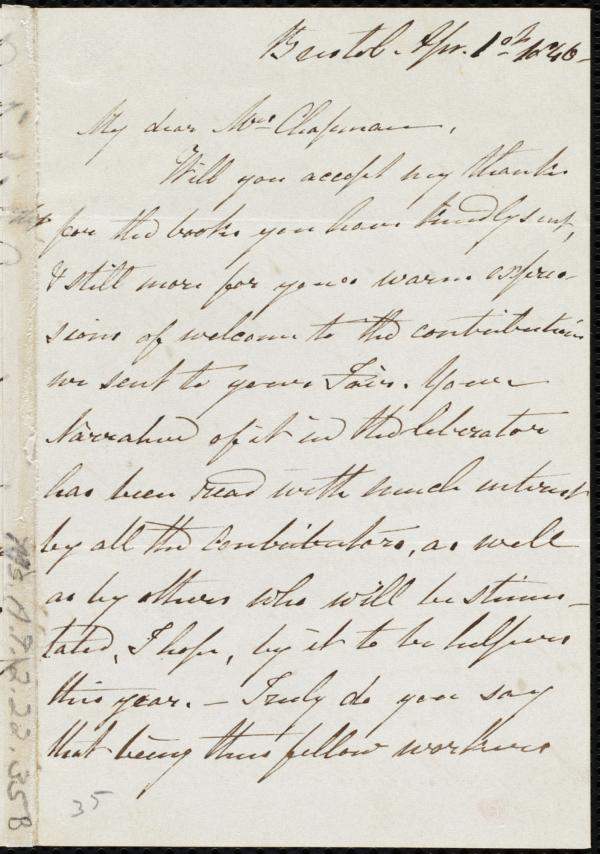 Bristol. Apr. 1st 1846-
My dear Mrs Chapman,
Will you accept my thanks
for the books you have kindly sent,
& still more for your warm expres-
sions of welcome to the contributions
we sent to your Fair. Your
Narrative of it in the Liberator
has been read with much interest
by all the contributors, as well
as by others who will be stimu-
lated, I hope, by it to be helpers
this year. - Truly do you say
that being thus fellow workers
35
Ms A.9.2.22.35B